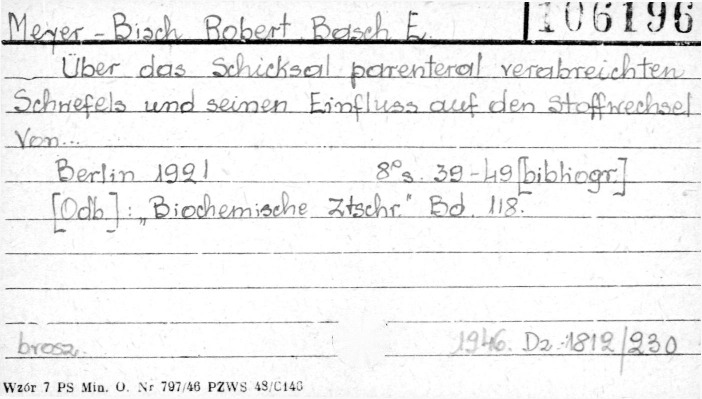 106196
Meyer-Bisch Robert Basch E.
Über das Schicksal parenteral verabreichten
Schwefels und seinen Einfluss auf den Stoffwechsel
Von...
Berlin 1921 8° s. 39-49 [bibliogr.]
[Odb]: „Biochemische Ztschr." Bd. 118.
brosz. 1946. Dz. 1812/230
Wzór 7 PS Min. O. Nr 797/46 PZWS 48/C146